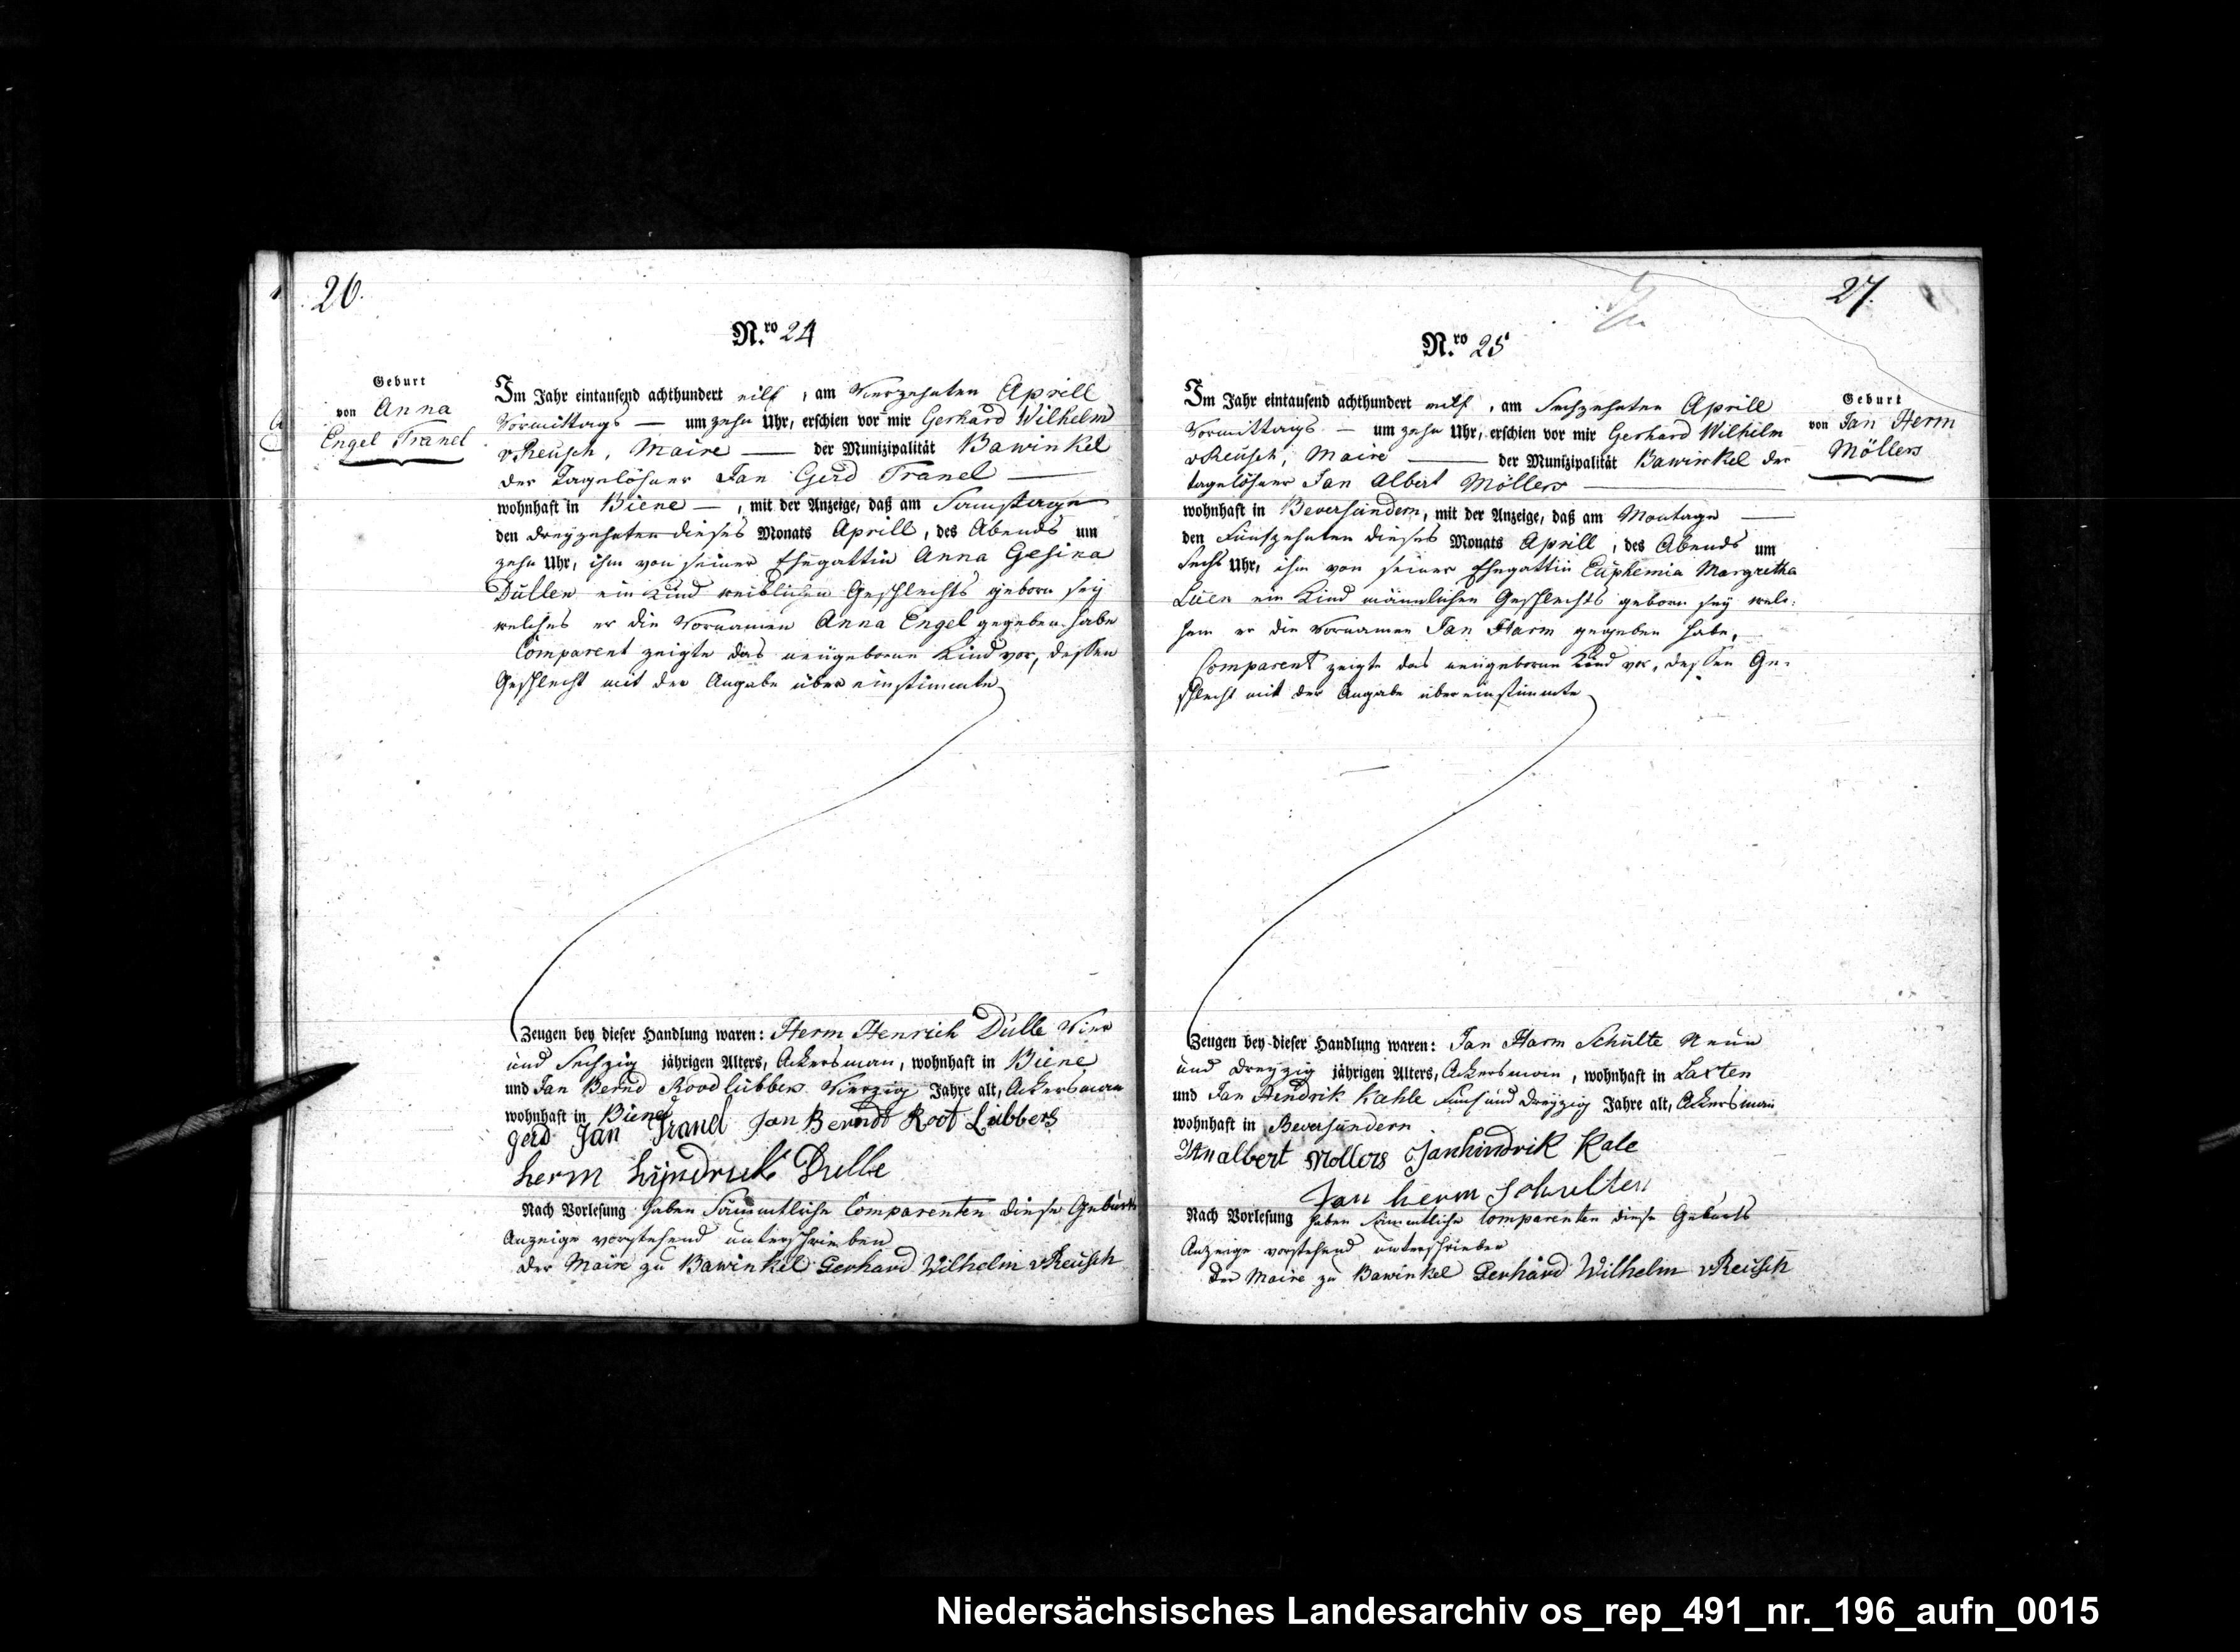 26.
N.ro 24
Geburt
von Anna
Engel Tranel
Im Jahr eintausend achthundert eilf, am Vierzehnten Aprill
Vormittags — um zehn Uhr, erschien vor mir Gerhard Wilhelm
vReusch, Maire — der Munizipalität Bawinkel
der Tagelöhner Jan Gerd Tranel —
wohnhaft in Biene —, mit der Anzeige, daß am Samstage
den dreyzehnten dieses Monats Aprill, des Abends um
zehn Uhr, ihm von seiner Ehegattin Anna Gesina
Düllen ein Kind weiblichen Geschlechts geborn sey
welches er die Vornamen Anna Engel gegeben habe
Comparent zeigte das neugeborne Kind vor, dessen
Geschlecht mit der Angabe über einstimmte
Zeugen bey dieser Handlung waren: Herm Henrich Dülle Vier
und Sechzig jährigen Alters, Ackersman, wohnhaft in Biene
und Jan Bernd Rood lübbers Vierzig Jahre alt, Ackersman
wohnhaft in Biene
gerd Jan Tranel Jan Berndt Root Lübbers
herm hijndruk Dulle
Nach Vorlesung haben Sämmtliche Comparenten diese Geburts
Anzeige vorstehend unterschrieben
der Maire zu Bawinkel Gerhard Wilhelm vReusch
27.
N.ro 25
Geburt
von Jan Herm
Möllers
Im Jahr eintausend achthundert eilf, am Sechzehnten Aprill
Vormittags — um zehn Uhr, erschien vor mir Gerhard Wilhelm
vReusch, Maire — der Munizipalität Bawinkel der
tagelöhner Jan Albert Möllers —
wohnhaft in Beversundern, mit der Anzeige, daß am Montage —
den Funfzehnten dieses Monats Aprill, des Abends um
Sechs Uhr, ihm von seiner Ehegattin Euphemia Margretha
Lüen ein Kind männlichen Geschlechts geborn sey wel:
chem er die Vornamen Jan Harm gegeben habe,
Comparent zeigte das neugeborne Kind vor, dessen Ge-
schlecht mit der Angabe übereinstimmte
Zeugen bey dieser Handlung waren: Jan Harm Schulte Neun
und Dreyzig jährigen Alters, Ackersman, wohnhaft in Laxten
und Jan Hindrik Kahle Funf und Dreyzig Jahre alt, Ackersman
wohnhaft in Beversundern
Janalbert Mollers Janhindrik Kale
Jan herm Schulten
Nach Vorlesung haben Sämmtliche Comparenten diese Geburts
Anzeige vorstehend unterschrieben
Der Maire zu Bawinkel Gerhard Wilhelm vReusch
Niedersächsisches Landesarchiv os_rep_491_nr._196_aufn_0015